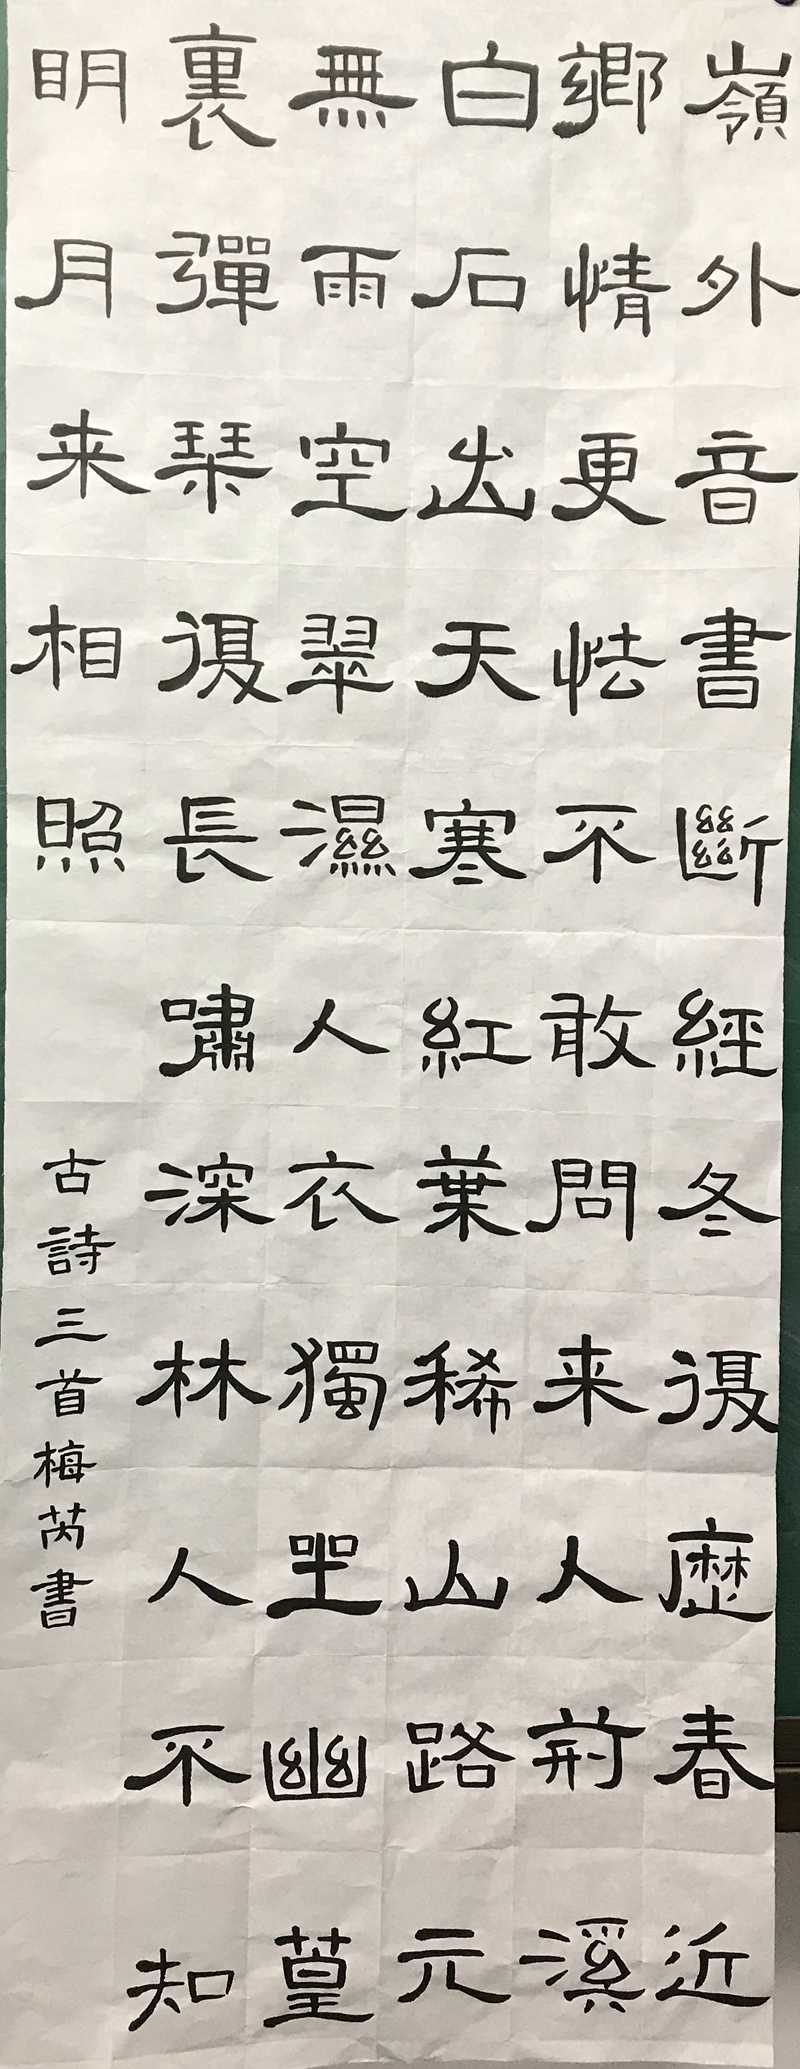 嶺外音書斷經冬復歷春近
鄉情更怯不敢問来人荊溪
白石出天寒紅葉稀山路元
無雨空翠濕人衣獨坐幽篁
裏彈琴復長嘯深林人不知
明月来相照
古詩三首梅芮書